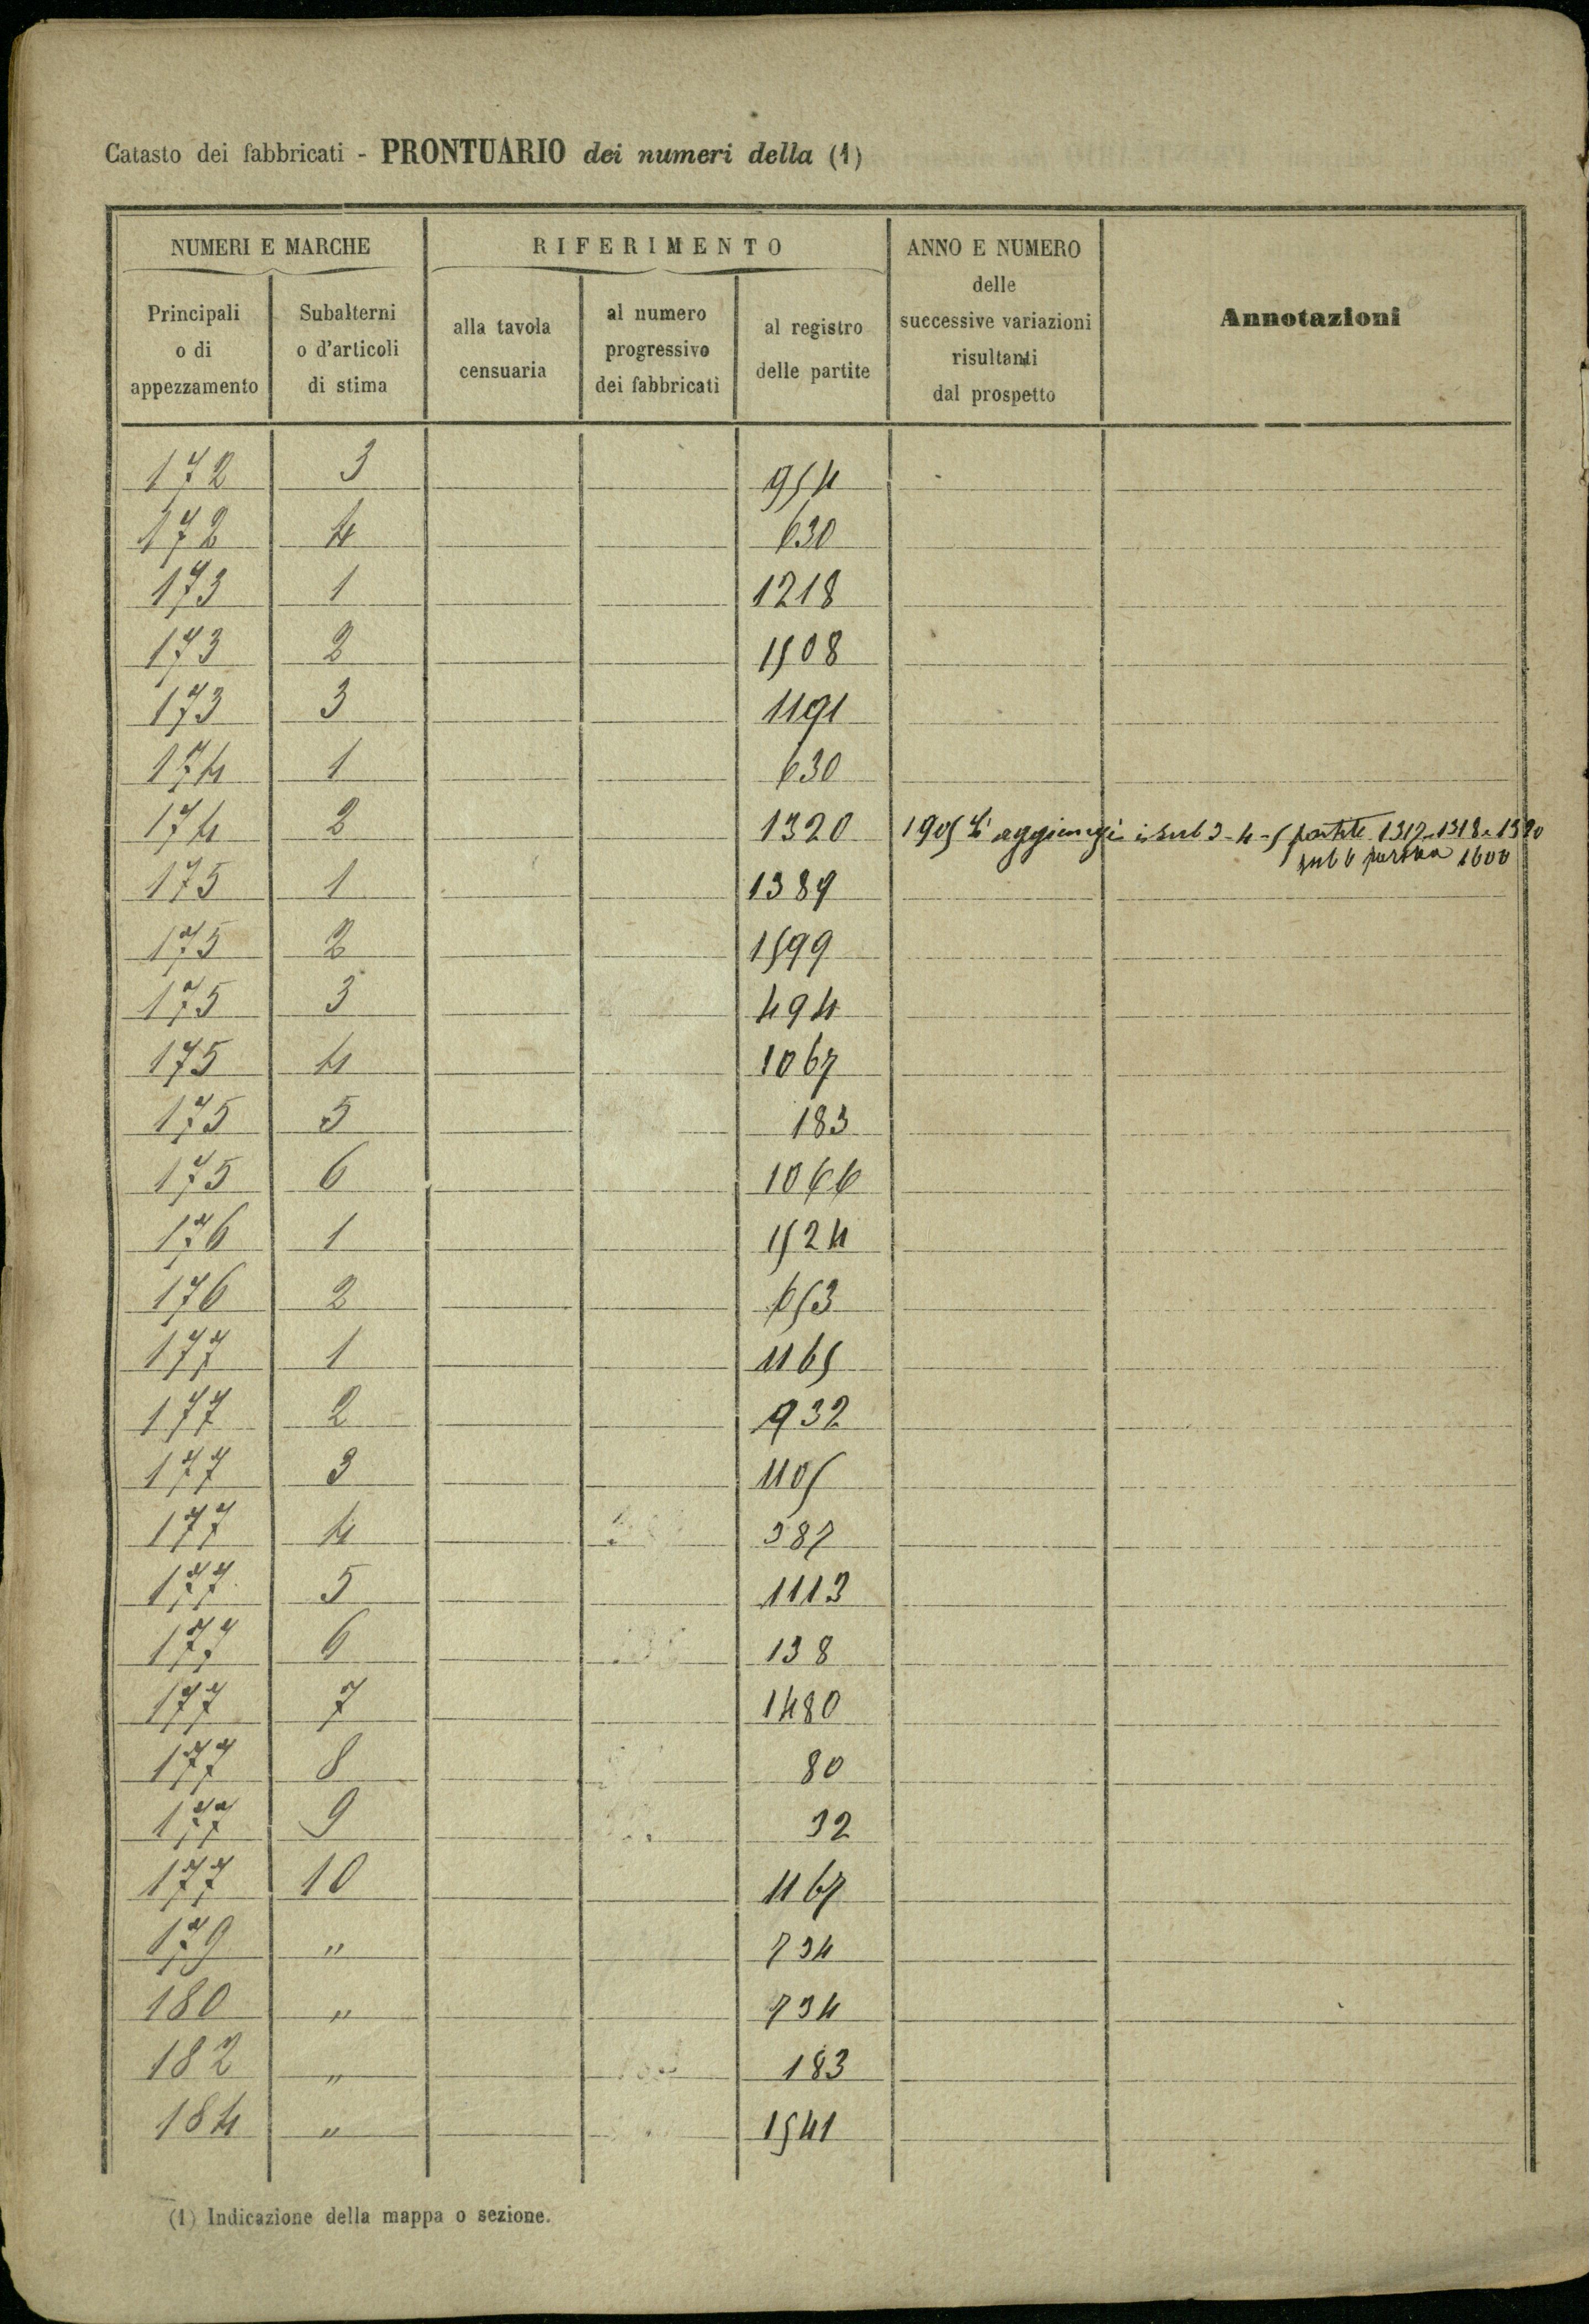 Catasto dei fabbricati - PRONTUARIO dei numeri della (1)
NUMERI E MARCHE
RIFERIMENTO
ANNO E NUMERO
delle
successive variazioni
risultanti
dal prospetto
Annotazioni
Principali
o di
appezzamento
Subalterni
o d'articoli
di stima
alla tavola
censuaria
al numero
progressivo
dei fabbricati
al registro
delle partite
172 3 954
172 4 630
173 1 1218
173 2 1508
173 3 1191
174 1 630
174 2 1320 1905 Si aggiungi i sub 3-4-5 partite 1312-1318-1320
sub 6 partita 1600
175 1 1389
175 2 1599
175 3 494
175 4 1067
175 5 183
175 6 1066
176 1 1524
176 2 653
177 1 1165
177 2 932
177 3 1105
177 4 387
177 5 1113
177 6 138
177 7 1480
177 8 80
177 9 32
177 10 1167
179 " 734
180 " 734
182 " 183
184 " 1541
(1) Indicazione della mappa o sezione.